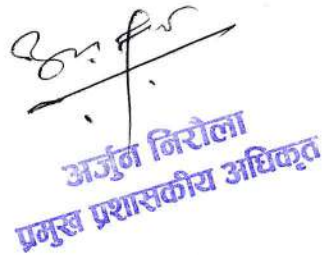 अर्जुन निरौला
प्रमुख प्रशासकीय अधिकृत